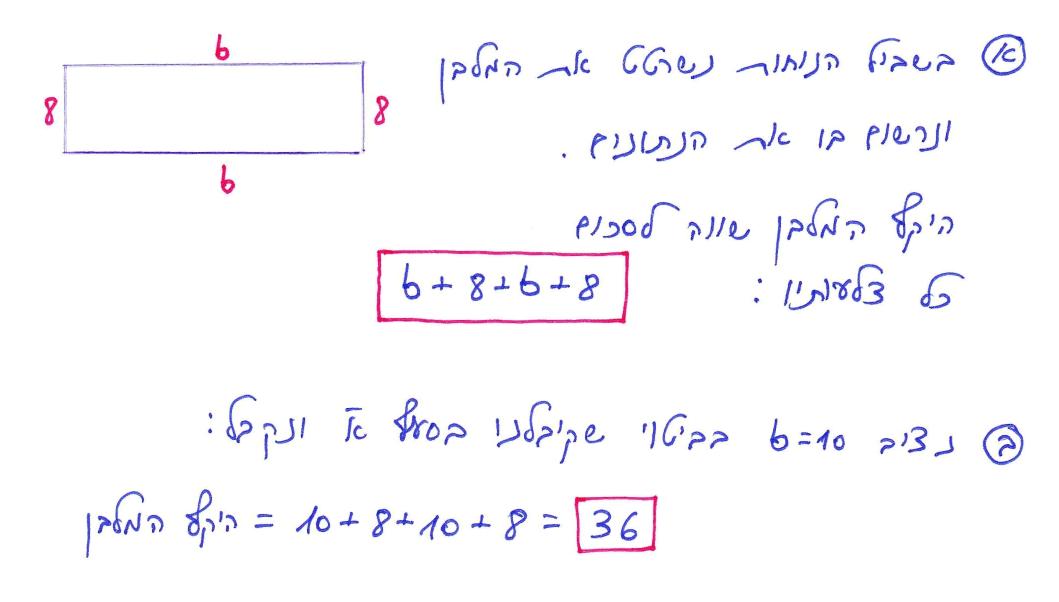 b
8
8
b
א בשביל הנוחות נשרטט את המלבן
ונרשום בו את הנתונים .
היקף המלבן שווה לסכום
כל צלעותיו :
b + 8 + b + 8
ב נציב b=10 בביטוי שקיבלנו בסעיף א ונקבל:
היקף המלבן = 10 + 8 + 10 + 8 = 36